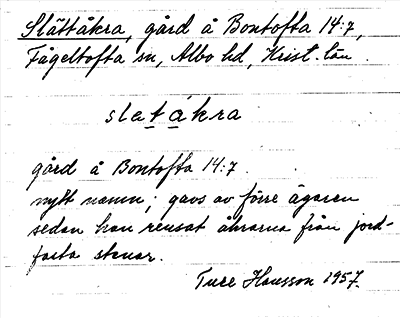 Slättåkra, gård å Bontofta 14:7,
Fågeltofta sn, Albo hd, Krist. län.
sletákra
gård å Bontofta 14:7.
nytt namn; gavs av förre ägaren
sedan han rensat åkrarna från jord-
fasta stenar.
Ture Hansson 1957.